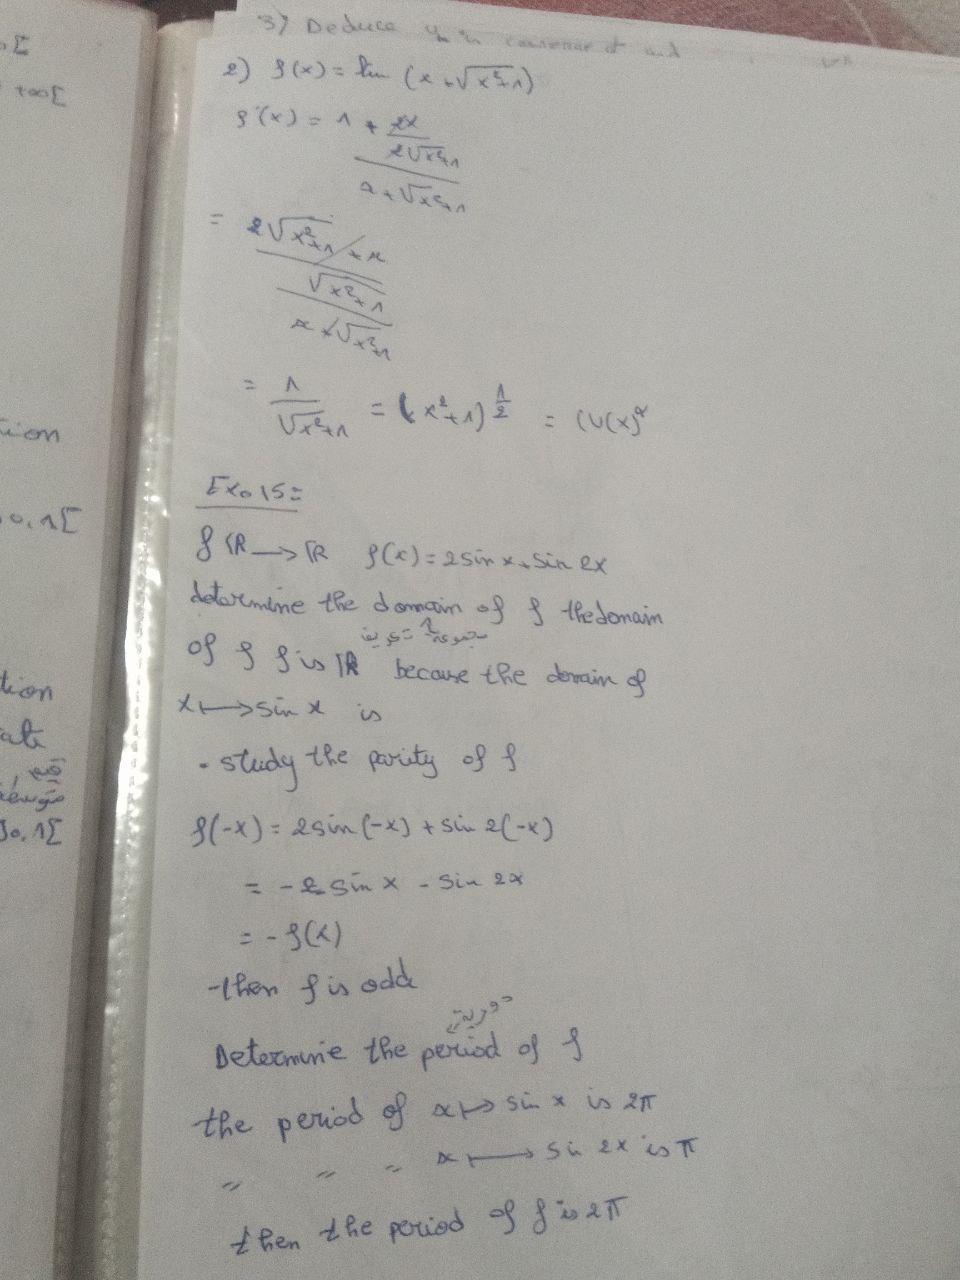 3) Deduce
2) f(x) = ln (x + √x²+1)
f'(x) = 1 + 2x
2√x²+1
x + √x²+1
= √x²+1 + x
√x²+1
x + √x²+1
= 1 / √x²+1 = (x²+1)^1/2 = (U(x))^α
Exo 15 =
f IR → IR f(x) = 2 sin x + sin 2x
determine the domain of f the domain
مجموعة تعريف
of f f is IR because the domain of
x ↦ sin x is
. study the parity of f
f(-x) = 2 sin (-x) + sin 2(-x)
= - 2 sin x - sin 2x
= - f(x)
-then f is odd
دورية
Determine the period of f
the period of x ↦ sin x is 2π
〃 〃 〃 x ↦ sin 2x is π
then the period of f is 2π
o[
+∞[
tion
]0,1[
tion
ate
]0,1[